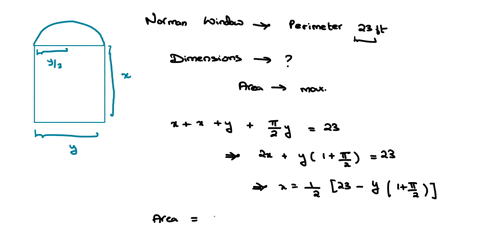 Norman Window → Perimeter 23 ft
y/2
x
y
Dimensions → ?
Area → max.
x + x + y + π/2 y = 23
⇒ 2x + y (1 + π/2) = 23
⇒ x = 1/2 [23 - y (1 + π/2)]
Area =